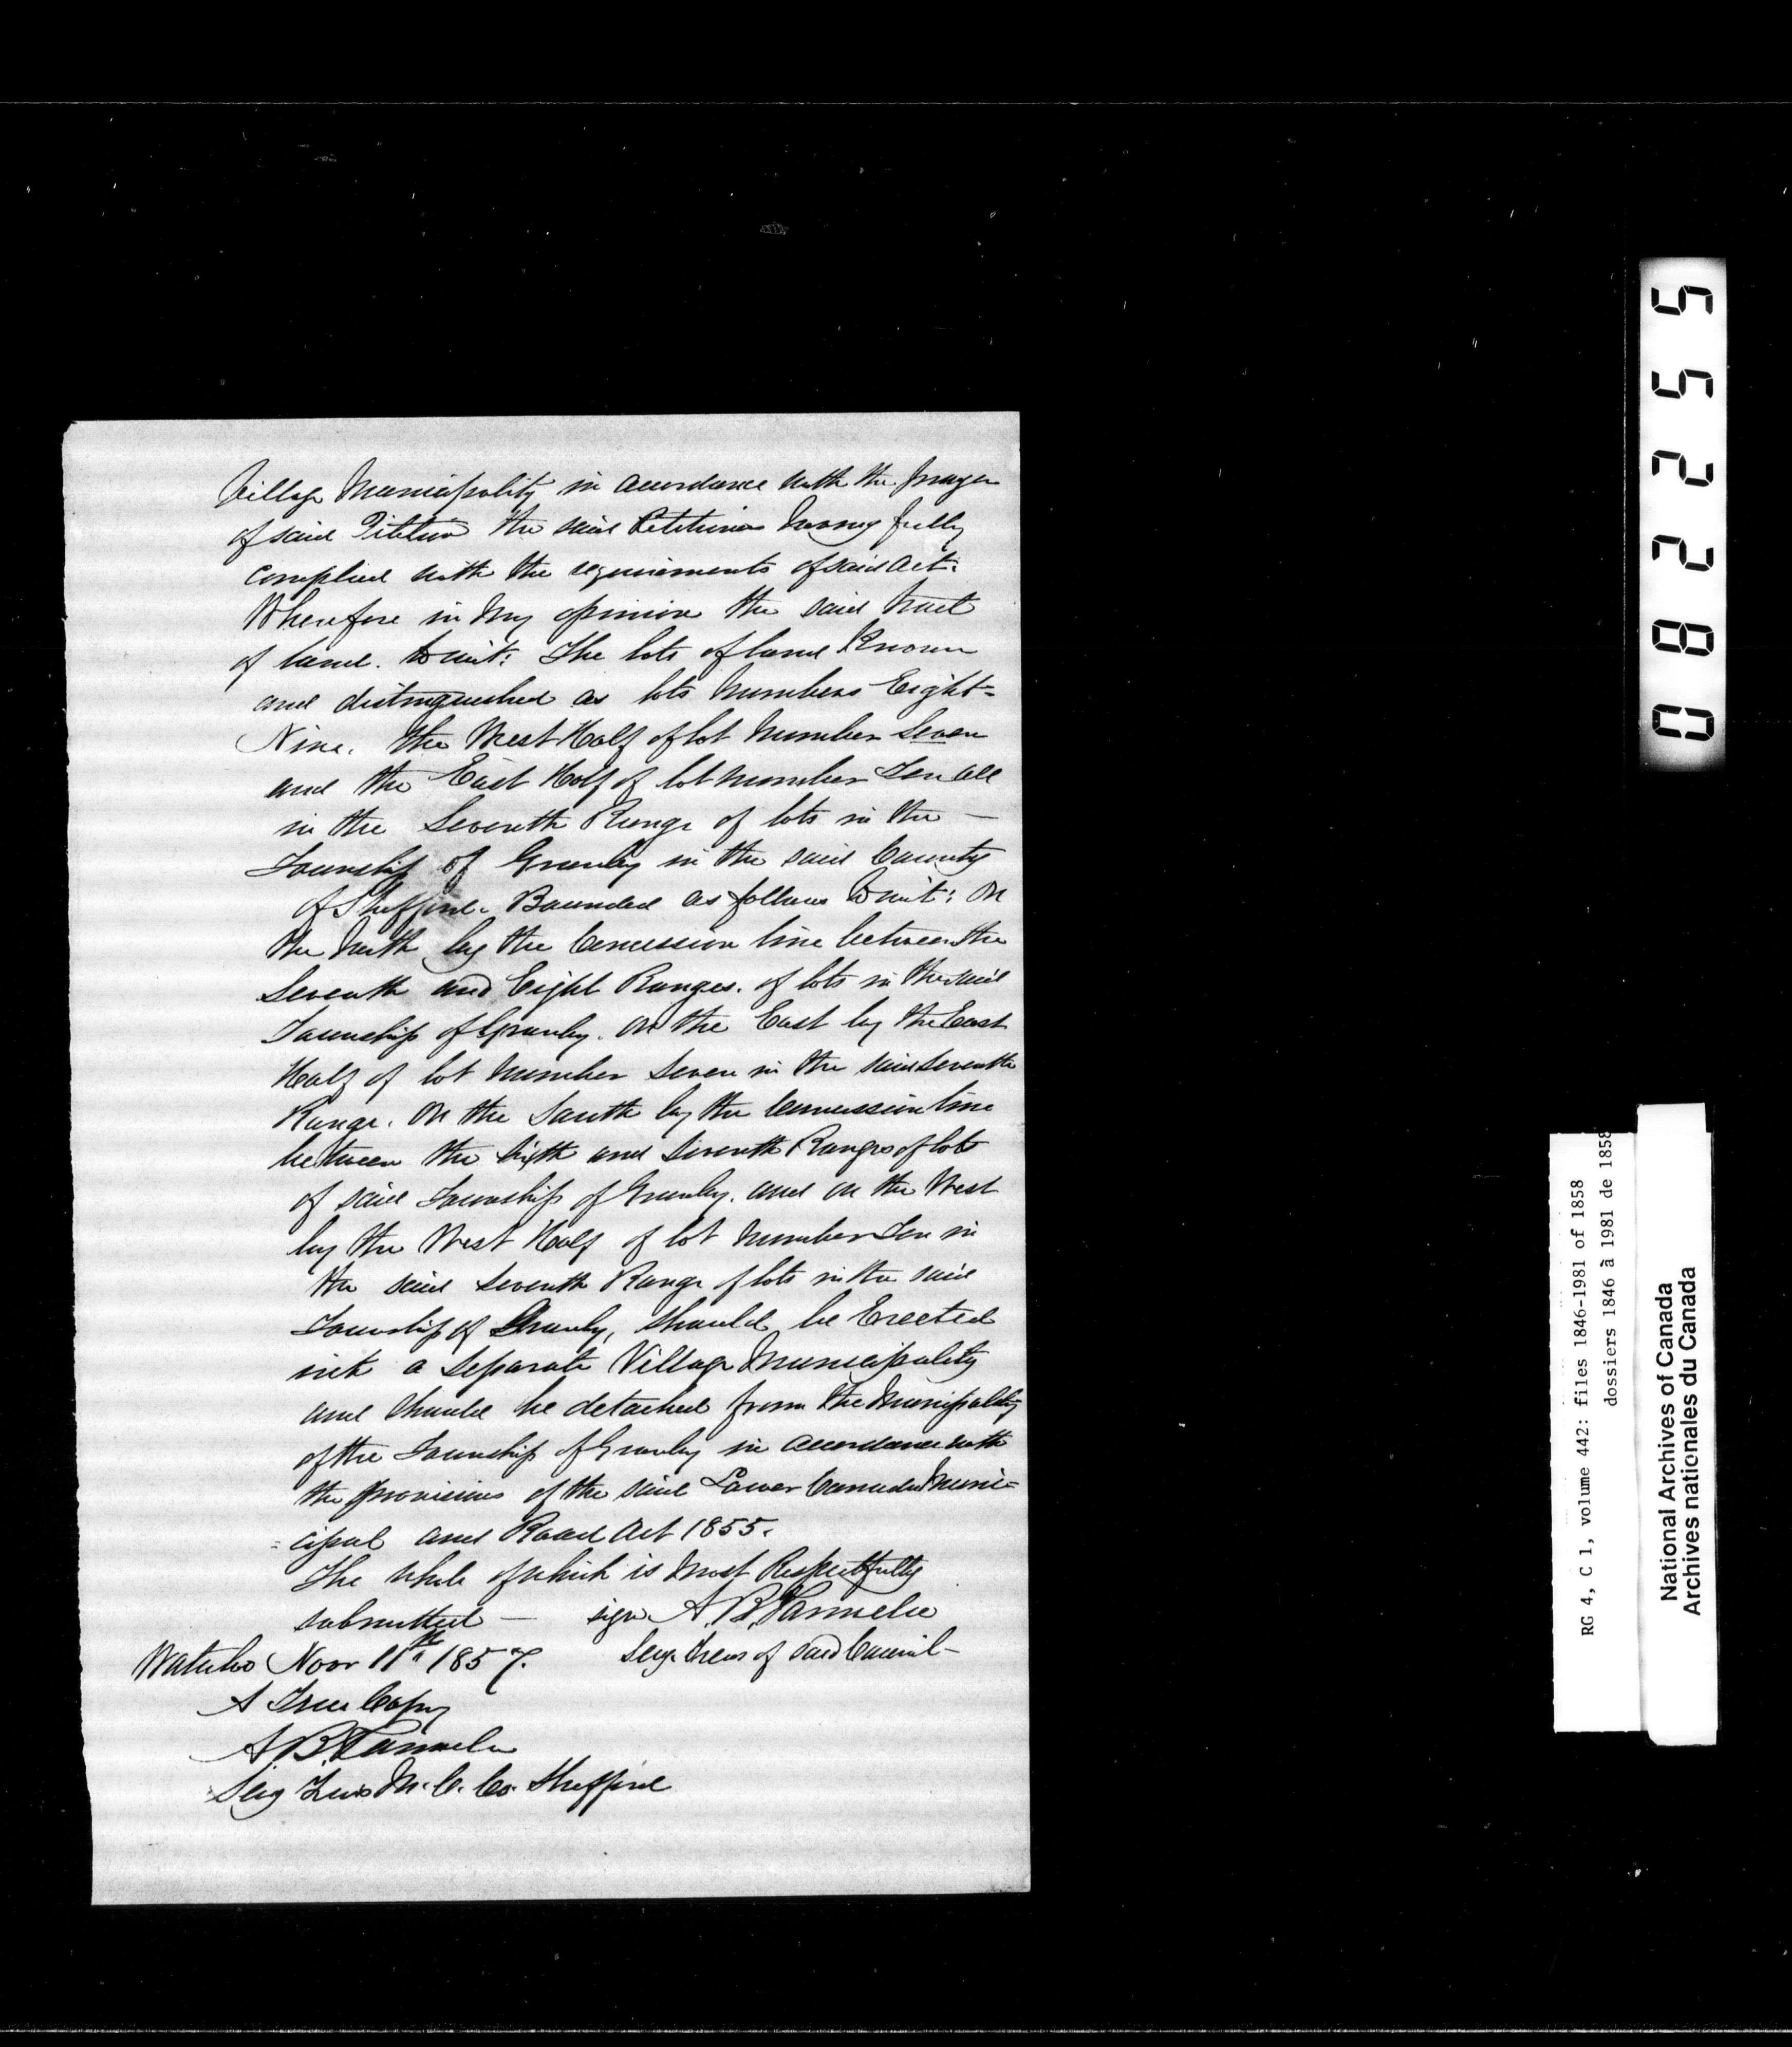 Village Municipality in accordance with the prayer
of said Petition the said Petitioners having fully
complied with the requirements of said Act.
Wherefore in my opinion the said tract
of land. to wit: The lots of land Known
and distinguished as lots numbers Eight-
Nine. the West Half of lot number Seven
and the East Half of lot number Ten all
in the Seventh Range of lots in the —
Township of Granby in the said County
of Shefford. Bounded as follows to wit: On
the North by the Concession line between the
Seventh and Eight Ranges. of lots in the said
Township of Granby. On the East by the East
Half of lot number Seven in the said Seventh
Range. On the South by the Concession line
between the Sixth and Seventh Ranges of lots
of said Township of Granby. and on the West
by the West Half of lot number Ten in
the said Seventh Range of lots in the said
Township of Granby, should be Erected
into a Separate Village Municipality
and should be detached from the Municipality
of the Township of Granby in accordance with
the provisions of the said Lower Canada Muni=
=cipal and Road Act 1855.
The whole of which is most Respectfully
submitted — sign A. B. Parmelee
Secy Treas of said Council-
Waterloo Novr 11th 1857.
A True Copy
A. B. Parmelee
Secy Treas M. C. Co. Shefford
082255
RG 4, C 1, volume 442: files 1846-1981 of 1858
dossiers 1846 à 1981 de 1858
National Archives of Canada
Archives nationales du Canada